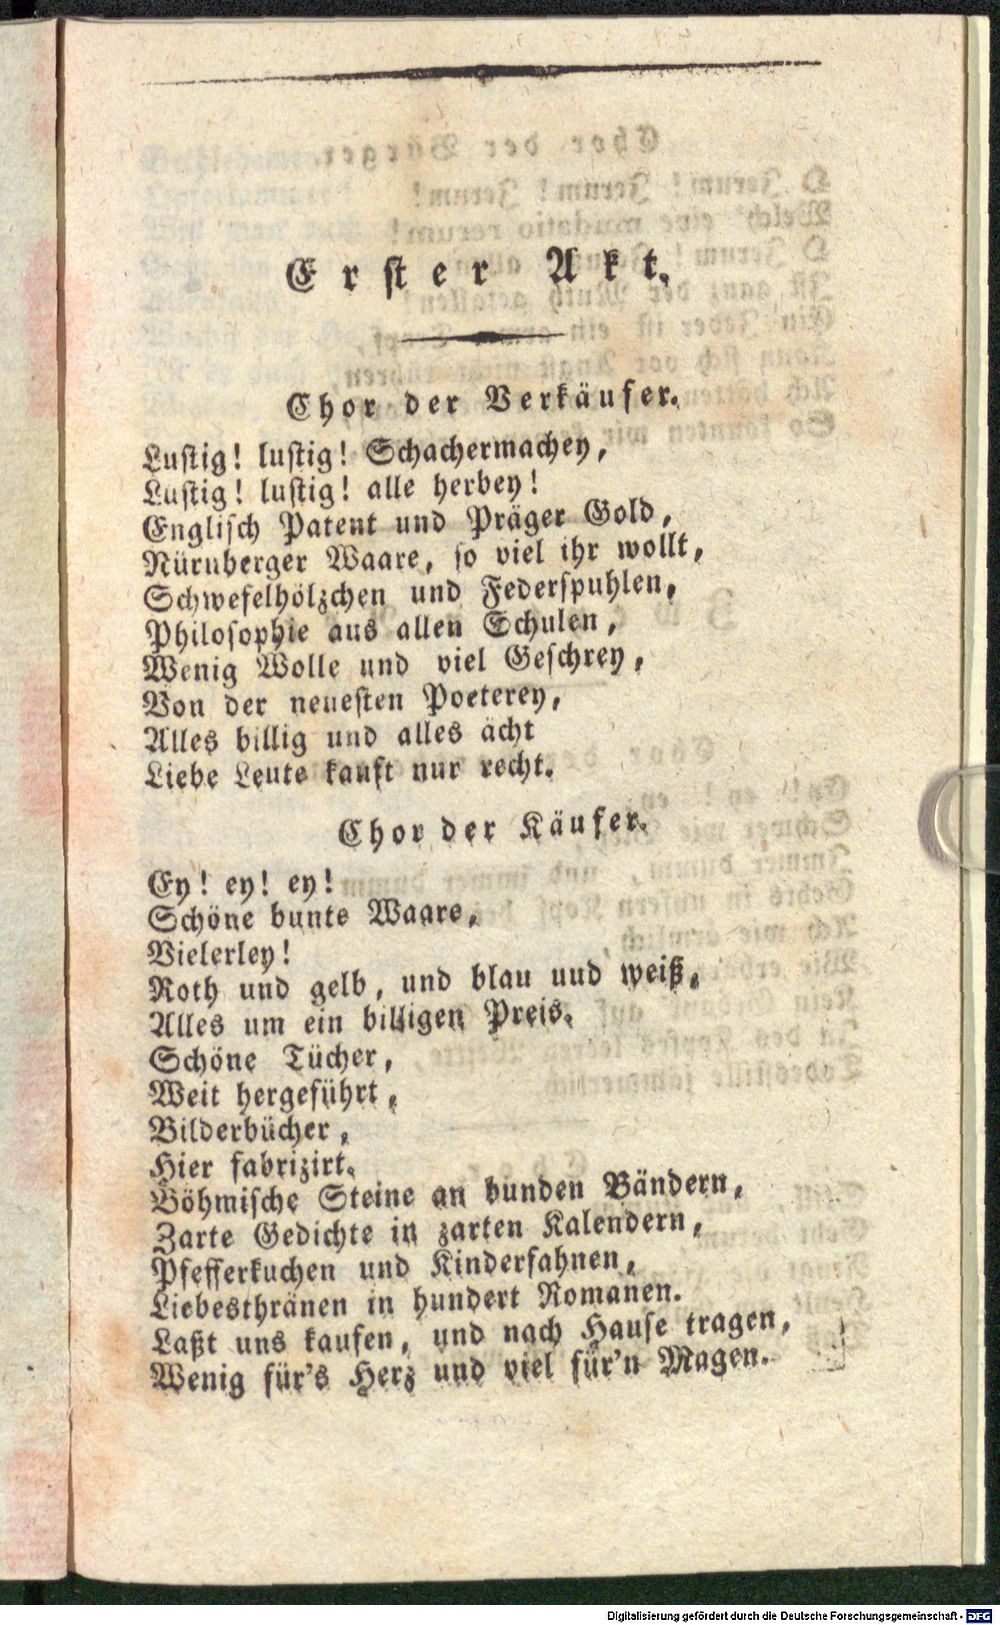 Erster Akt.
Chor der Verkäufer.
Lustig! lustig! Schachermachey,
Lustig! lustig! alle herbey!
Englisch Patent und Präger Gold,
Nürnberger Waare, so viel ihr wollt,
Schwefelhölzchen und Federspuhlen,
Philosophie aus allen Schulen,
Wenig Wolle und viel Geschrey,
Von der neuesten Poeterey,
Alles billig und alles ächt
Liebe Leute kauft nur recht.
Chor der Käufer.
Ey! ey! ey!
Schöne bunte Waare,
Vielerley!
Roth und gelb, und blau und weiß,
Alles um ein billigen Preis.
Schöne Tücher,
Weit hergeführt,
Bilderbücher,
Hier fabrizirt.
Böhmische Steine an bunden Bändern,
Zarte Gedichte in zarten Kalendern,
Pfefferkuchen und Kinderfahnen,
Liebesthränen in hundert Romanen.
Laßt uns kaufen, und nach Hause tragen,
Wenig für's Herz und viel für'n Magen.
Digitalisierung gefördert durch die Deutsche Forschungsgemeinschaft - DFG